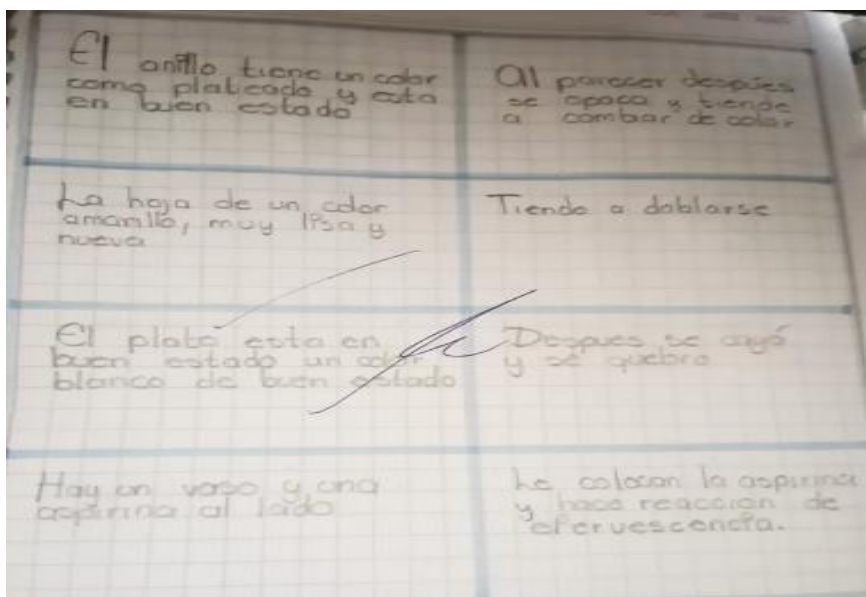 El anillo tiene un color
como plateado y esta
en buen estado
Al parecer después
se opaca y tiende
a cambiar de color
La hoja de un color
amarillo, muy lisa y
nueva
Tiende a doblarse
El plato esta en
buen estado un color
blanco de buen estado
Despues se cayó
y se quebro
Hay un vaso y una
aspirina al lado
Le colocan la aspirina
y hace reacción de
efervescencia.